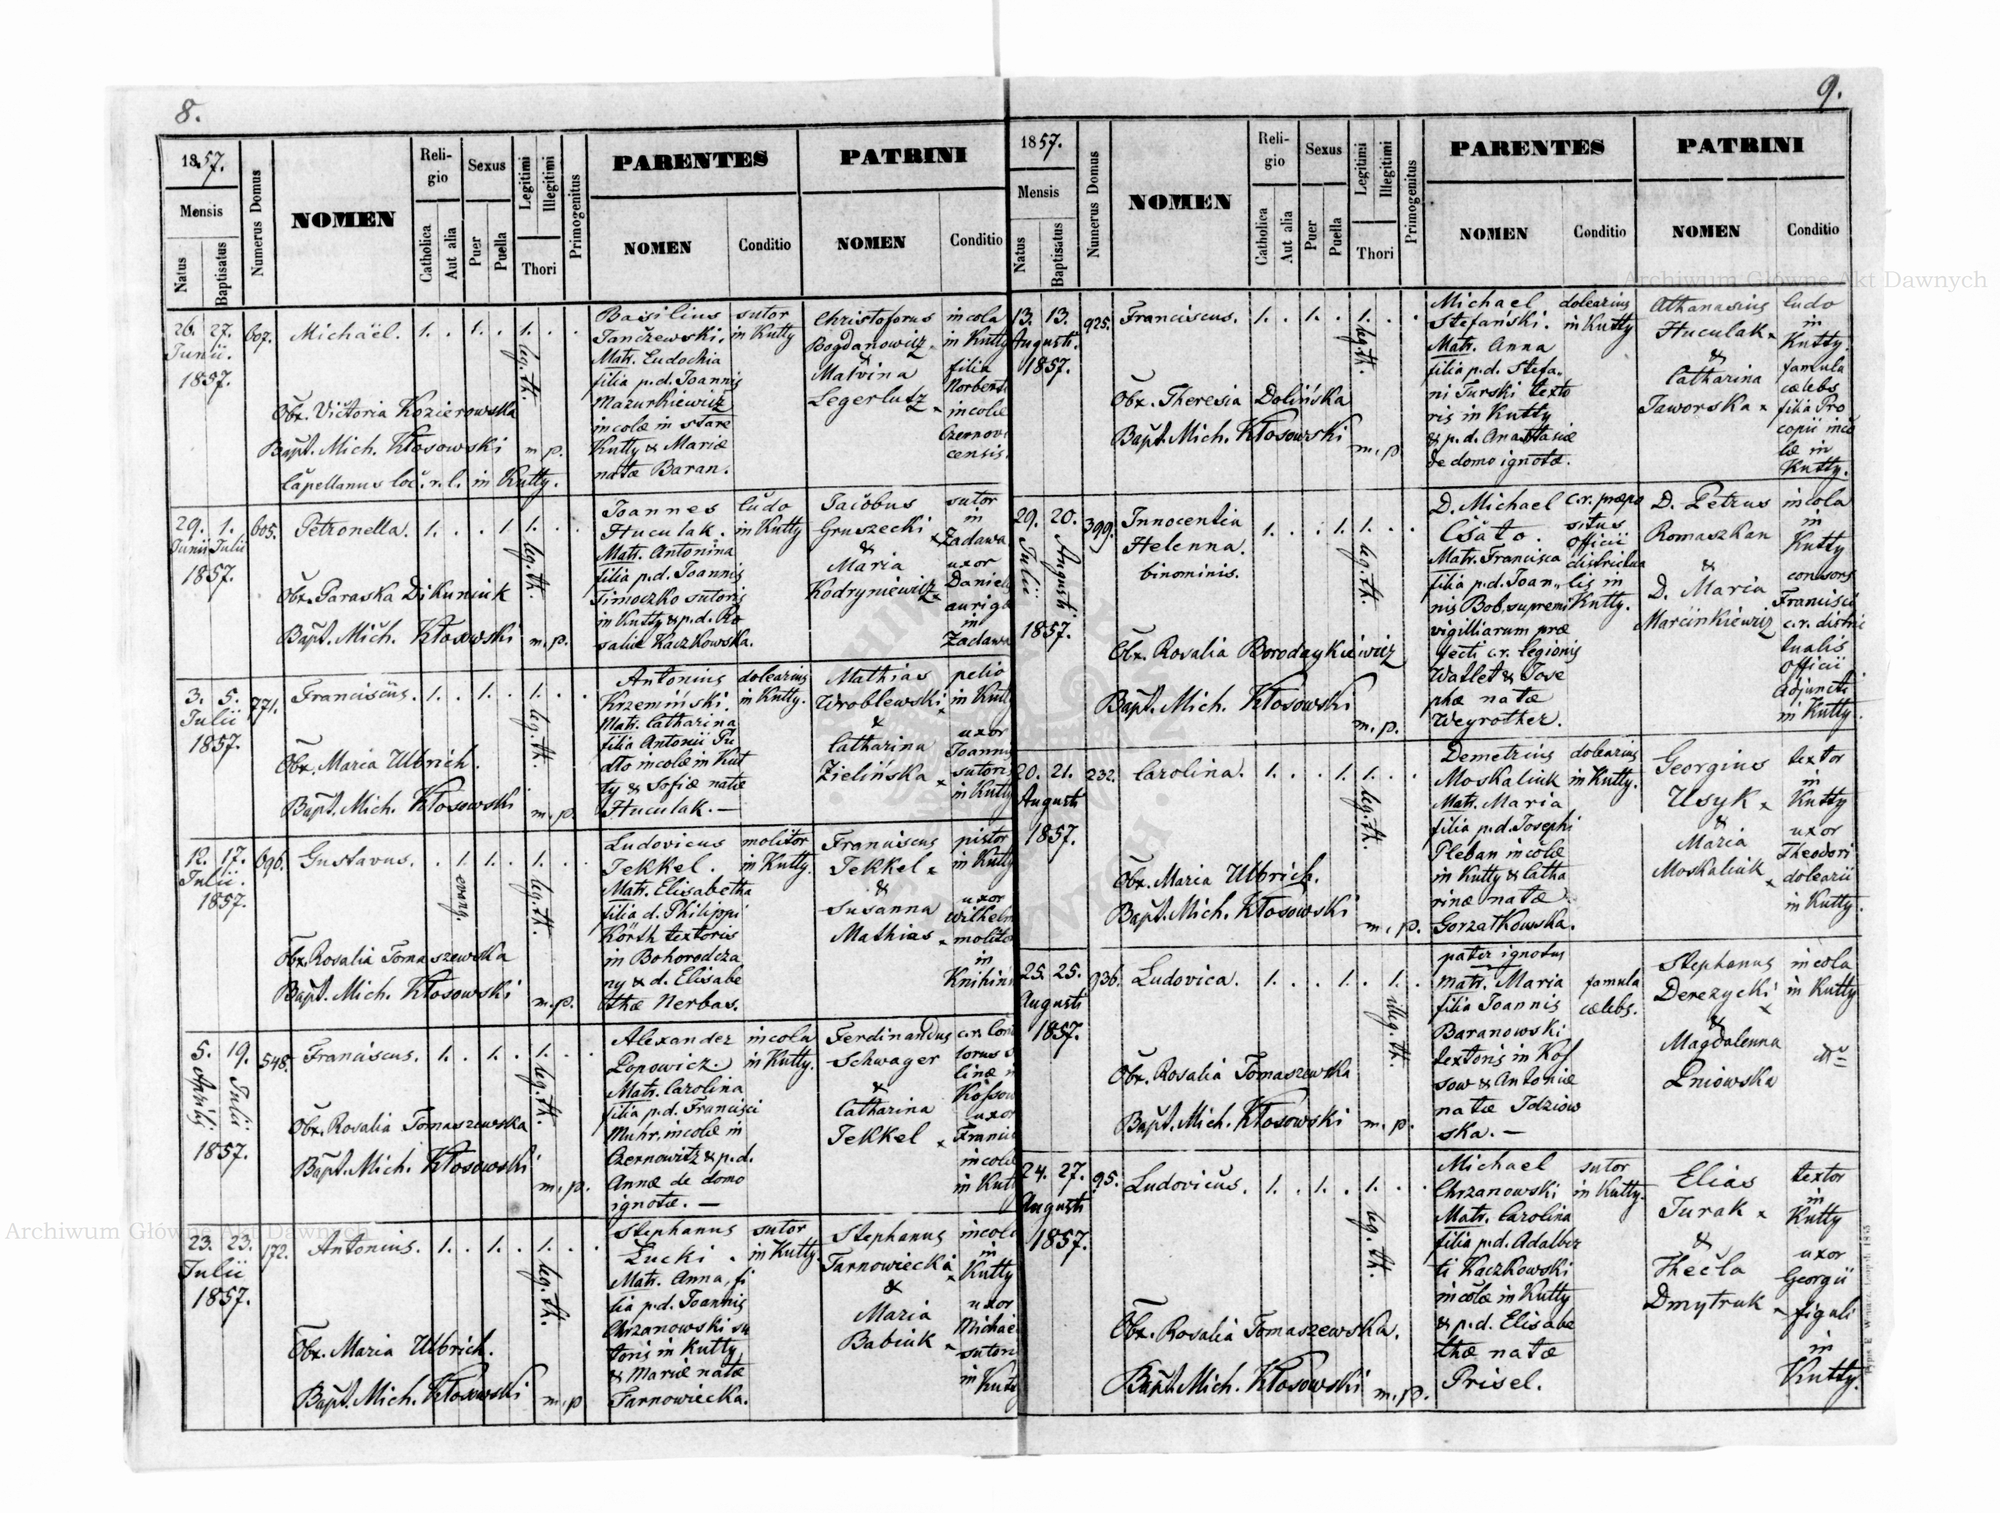 8.
1857.
Mensis
Natus
Baptisatus
Numerus Domus
NOMEN
Religio
Catholica
Aut alia
Sexus
Puer
Puella
Legitimi
Illegitimi
Thori
Primogenitus
PARENTES
NOMEN
Conditio
PATRINI
NOMEN
Conditio
26. 27.
Junii.
1857.
607.
Michaël.
1. . 1. . 1. . .
leg. th.
Obx. Victoria Kozierowska
Bapt. Mich. Kłosowski m. p.
Capellanus loc. r. l. in Kutty.
Basilius
Janczewski.
Matr. Eudochia
filia p.d. Joannis
Mazurkiewicz
incolæ in stare
Kutty & Mariæ
natæ Baran.
sutor
in Kutty
Christoforus
Bogdanowicz
&
Malvina
Legerlutz ×
incola
in Kutty
filia
Norberti
incolæ
Czernovi
censis.
29. 1.
Junii Julii
1857.
605.
Petronella.
1. . . 1 1. . .
leg. th.
Obx. Paraska Dikuniuk
Bapt. Mich. Kłosowski m. p.
Joannes
Huculak.
Matr. Antonina
filia p.d. Joannis
Timoczko sutoris
in Kutty & p.d. Ro
saliæ Kaczkowska.
ludo
in Kutty
Jacobus
Gruszecki ×
&
Maria
Kodryniewicz ×
sutor
in
Zadawa
uxor
Danielis
aurigæ
in
Zadawa
3. 5.
Julii
1857.
771.
Franciscus.
1. . 1. . 1. . .
leg. th.
Obx. Maria Ulbrich.
Bapt. Mich. Kłosowski m. p.
Antonius
Krzemiński.
Matr. Catharina
filia Antonii Pu
dło incolæ in Kut
ty & Sofiæ natæ
Huculak. —
dolearius
in Kutty.
Mathias
Wroblewski ×
&
Catharina
Zielińska ×
pelio
in Kutty
uxor
Joannis
sutoris
in Kutty
12. 17.
Julii.
1857.
696.
Gustavus.
. 1. 1. . 1. . .
evang.
leg. th.
Obx. Rosalia Tomaszewska
Bapt. Mich. Kłosowski m. p.
Ludovicus
Jekkel.
Matr. Elisabetha
filia d. Philippi
Körth textoris
in Bohorodcza
ny & d. Elisabe
thæ Nerbas.
molitor
in Kutty.
Franciscus
Jekkel ×
&
Susanna
Mathias ×
pistor
in Kutty
uxor
Wilhelm
molito
in
Knihini
5. 19.
Aprilis Julii
1857.
548.
Franciscus.
1. . 1. . 1. . .
leg. th.
Obx. Rosalia Tomaszewska
Bapt. Mich. Kłosowski m. p.
Alexander
Popowicz.
Matr. Carolina
filia p.d. Francisci
Muhr, incolæ in
Czernowitz & p.d.
Annæ de domo
ignotæ. —
incola
in Kutty.
Ferdinandus
Schwager
&
Catharina
Jekkel ×
uxor
Francis
incolæ
in Kutt
23. 23.
Julii
1857.
172.
Antonius.
1. . 1. . 1. . .
leg. th.
Obx. Maria Ulbrich.
Bapt. Mich. Kłosowski m. p
Stephanus
Łucki.
Matr. Anna, fi
lia p.d. Joannis
Chrzanowski su
toris in Kutty
& Mariæ natæ
Tarnowiecka.
sutor
in Kutty.
Stephanus
Tarnowiecki ×
&
Maria
Babiuk ×
incola
in
Kutty
uxor
Michael
sutori
in Kutt
9.
1857.
Mensis
Natus
Baptisatus
Numerus Domus
NOMEN
Religio
Catholica
Aut alia
Sexus
Puer
Puella
Legitimi
Illegitimi
Thori
Primogenitus
PARENTES
NOMEN
Conditio
PATRINI
NOMEN
Conditio
13. 13.
Augusti.
1857.
925.
Franciscus.
1. . 1. . 1. . .
leg. th.
Obx. Theresia Dolińska
Bapt. Mich. Kłosowski m. p.
Michael
Stefański.
Matr. Anna
filia p.d. Stefa,,
ni Turski texto
ris in Kutty
& p.d. Anastasiæ
de domo ignotæ.
dolearius
in Kutty
Athanasius
Huculak ×
&
Catharina
Jaworska ×
ludo
in
Kutty.
famula
cælebs
filia Pro
copii inco
læ in
Kutty.
29. 20.
Julii Augusti
1857.
399.
Innocentia
Helenna.
binominis.
1. . . 1. 1. . .
leg. th.
Obx. Rosalia Borodaykiewicz
Bapt. Mich. Kłosowski m. p.
D. Michael
Csáto.
Matr. Francisca
filia p.d. Joan,,
nis Bob, supremi
vigilliarum præ
fecti c.r. legionis
Wallet & Jose
phæ natæ
Weyrother.
c.r. præpo
situs
officii
districtua
lis in
Kutty.
D. Petrus
Romaszkan
&
D. Maria
Marcinkiewicz
incola
in
Kutty
consors
Francisci
c.r. distric
tualis
officii
Adjuncti
in Kutty.
20. 21.
Augusti
1857.
232.
Carolina.
1. . . 1. 1. . .
leg. th.
Obx. Maria Ulbrich.
Bapt. Mich. Kłosowski m. p.
Demetrius
Moskaliuk
Matr. Maria
filia p.d. Josephi
Pleban incolæ
in Kutty & Catha
rinæ natæ
Gorzatkowska.
dolearius
in Kutty.
Georgius
Usyk ×
&
Maria
Moskaliuk ×
textor
in
Kutty
uxor
Theodori
dolearii
in Kutty.
25. 25.
Augusti
1857.
936.
Ludovica.
1. . . 1. . 1.
illeg. th.
Obx. Rosalia Tomaszewska
Bapt. Mich. Kłosowski m. p.
pater ignotus
Matr. Maria
filia Joannis
Baranowski
textoris in Kos
sow & Antoniæ
natæ Idziow
ska. —
famula
cælebs.
Stephanus
Derezycki ×
&
Magdalenna
Lniowska
incola
in Kutty
24. 27.
Augusti
1857.
95.
Ludovicus.
1. . 1. . 1. . .
leg. th.
Obx. Rosalia Tomaszewska.
Bapt. Mich. Kłosowski m. p.
Michael
Chrzanowski
Matr. Carolina
filia p.d. Adalber
ti Kaczkowski
incolæ in Kutty
& p.d. Elisabe
thæ natæ
Prisel.
sutor
in Kutty.
Elias
Turak ×
&
Thecla
Dmytruk ×
textor
in
Kutty
uxor
Georgii
figuli
in
Kutty.
Archiwum Główne Akt Dawnych
Archiwum Główne Akt Dawnych